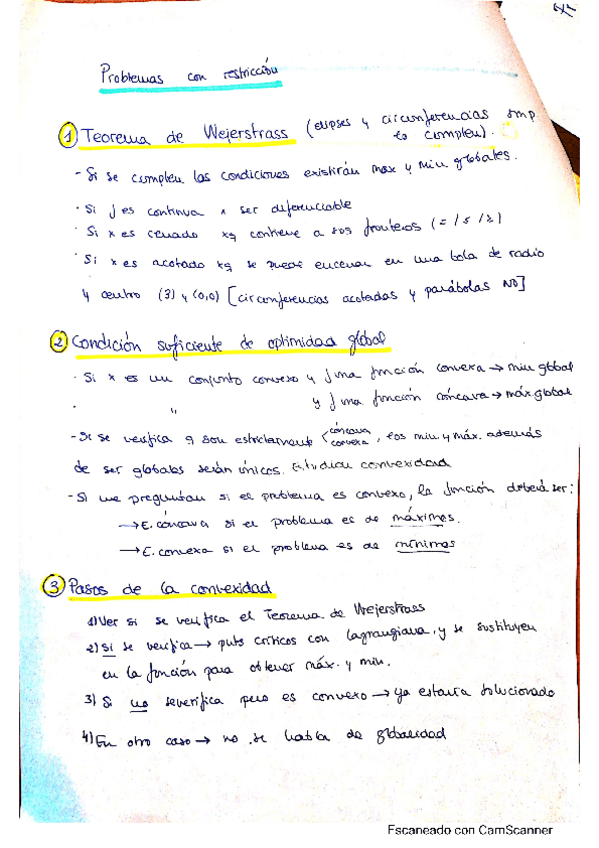 Problemas con restricción
1 Teorema de Weierstrass (elipses y circunferencias smp
lo cumplen).
- Si se cumplen las condiciones existirán max y min globales.
· Si f es continua x ser diferenciable
· Si x es cerrado xq contiene a sus fronteras (= / ≤ / ≥)
· Si x es acotado xq se puede encerrar en una bola de radio
y centro (3) y (0,0) [circunferencias acotadas y parábolas NO]
2 Condición suficiente de optimidad global
· Si x es un conjunto convexo y f una función convexa → min global
· " y f una función cóncava → máx. global
- Si se verifica q son estrictamente cóncava
convexa, los min y máx. además
de ser globales serán únicos. Estudiar convexidad
- Si me preguntan si el problema es convexo, la función deberá ser:
→ E. cóncava si el problema es de máximos.
→ E. convexa si el problema es de mínimos
3 Pasos de la convexidad
1) Ver si se verifica el Teorema de Weierstrass
2) Si se verifica → ptos críticos con lagrangiana, y se sustituyen
en la función para obtener máx. y min.
3) Si no se verifica pero es convexo → ya estaría solucionado
4) En otro caso → no se habla de globalidad
Escaneado con CamScanner